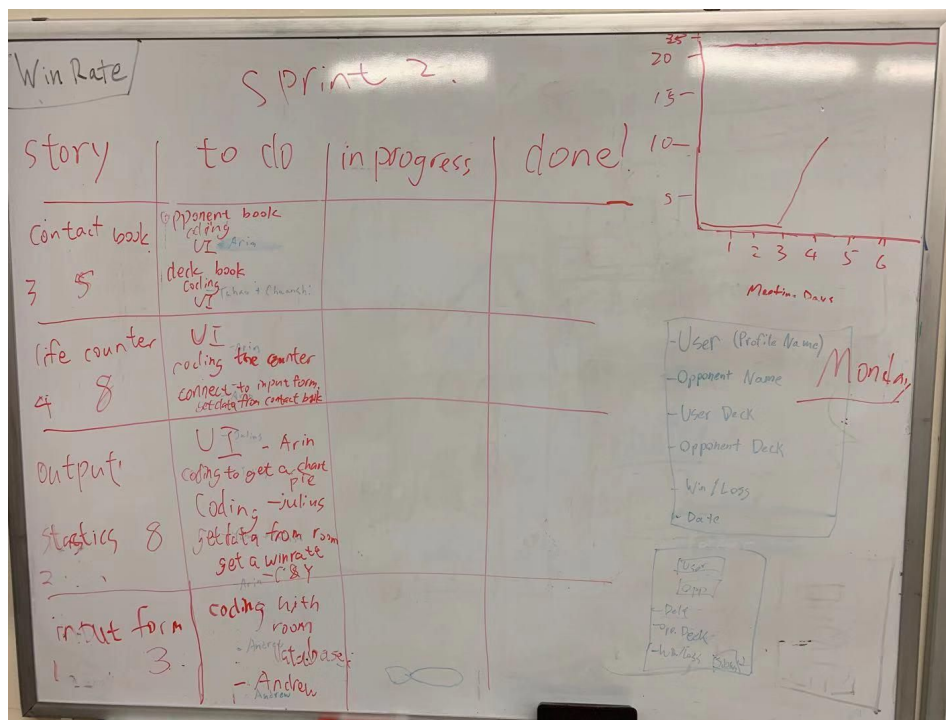 Win Rate
Sprint 2.
story
to do
in progress
done!
contact book
3 5
opponent book
coding
UI Arin
deck book
coding
UI
life counter
4 8
UI
coding the counter
connect to input form.
get data from contact book
output
stastics 8
2
UI - Arin
coding to get a chart
pie
Coding - julius
get data from room
get a winrate
- C & Y
input form
1 3.
coding with
room
database.
- Andrew
Andrew
25
20
15
10
5
1 2 3 4 5 6
Meeting Days
Monday
- User (Profile Name)
- Opponent Name
- User Deck
- Opponent Deck
- Win/Loss
- Date
User
Opp
- Date
- Opp. Deck
- Win/Loss